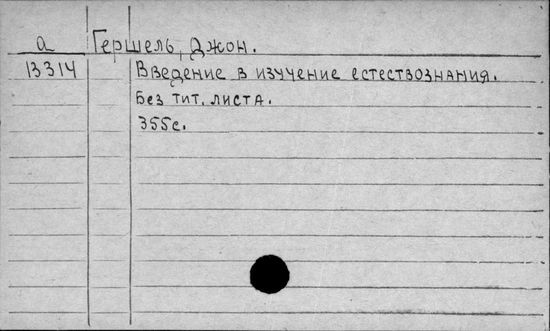 а Гершель, Джон.
13314 Введение в изучение естествознания.
Без тит. листа.
355с.